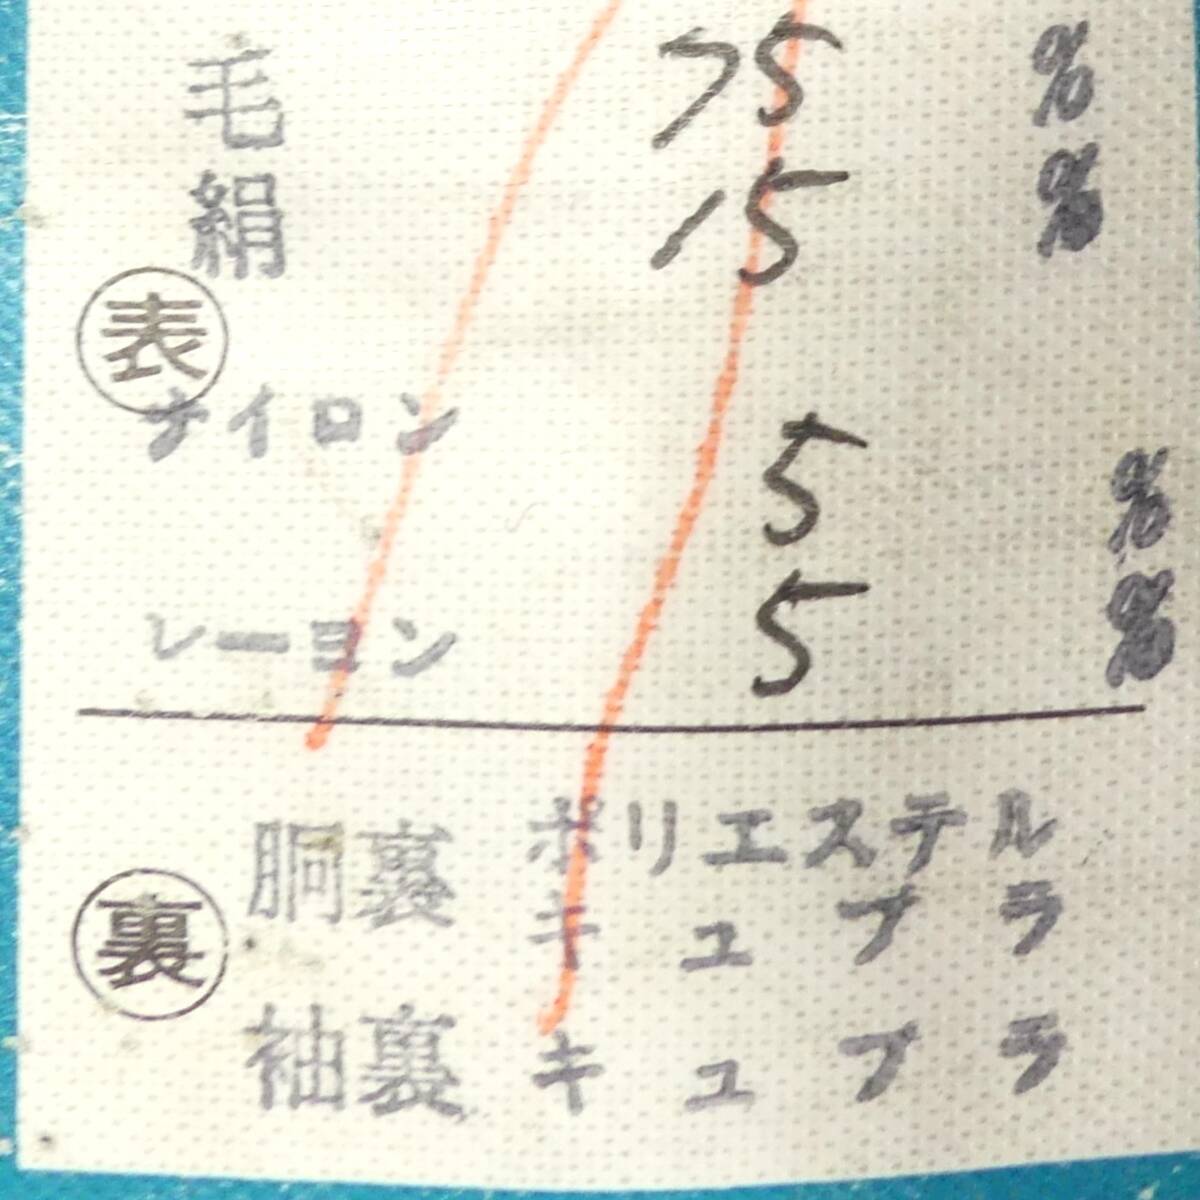 毛 75 %
絹 15 %
表
ナイロン 5 %
レーヨン 5 %
胴裏 ポリエステル
キュプラ
裏
袖裏 キュプラ